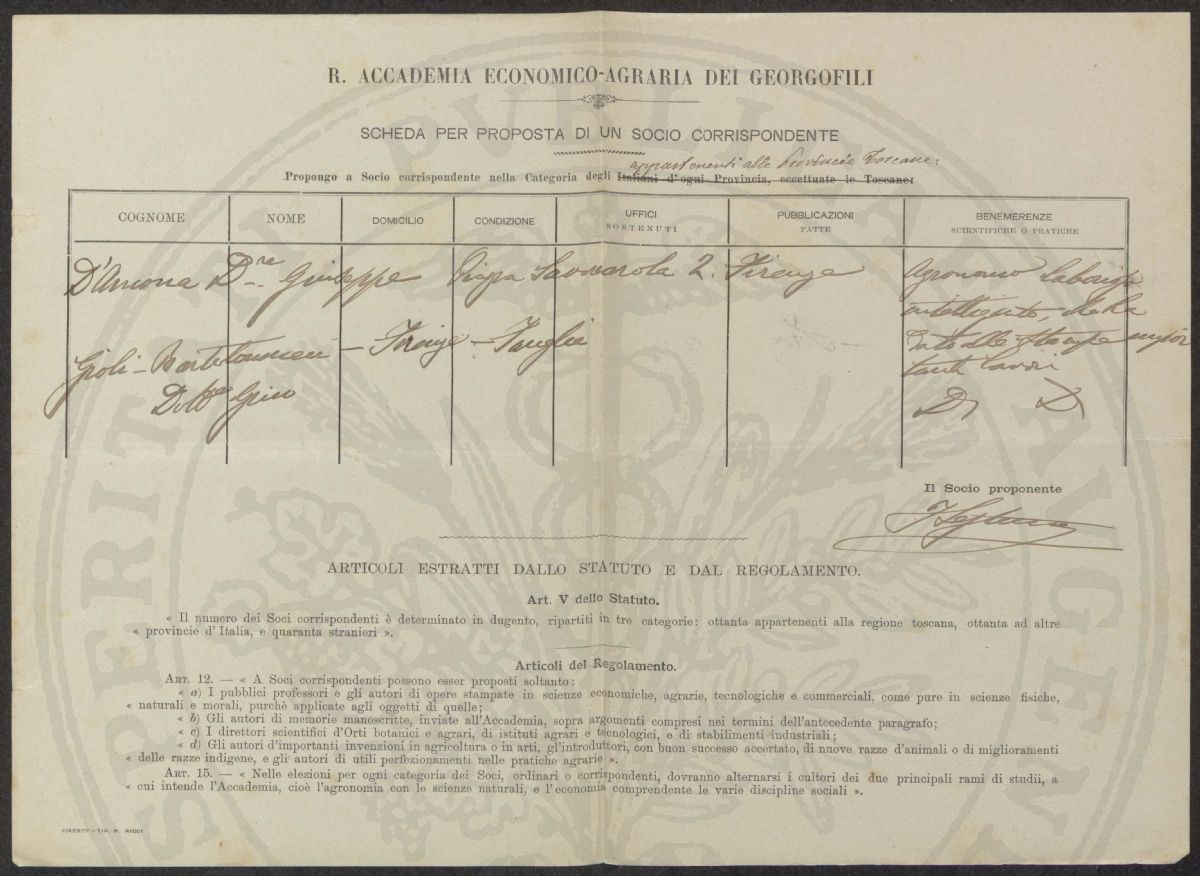 R. ACCADEMIA ECONOMICO-AGRARIA DEI GEORGOFILI
SCHEDA PER PROPOSTA DI UN SOCIO CORRISPONDENTE
appartenenti alle Provincie Toscane:
Propongo a Socio corrispondente nella Categoria degli Italiani d'ogni Provincia, eccettuate le Toscane:
COGNOME NOME DOMICILIO CONDIZIONE UFFICI SOSTENUTI PUBBLICAZIONI FATTE BENEMERENZE SCIENTIFICHE O PRATICHE
D'Ancona Dre Giuseppe Piazza Savonarola 2. Firenze
Agronomo
intelligente, che ha
dato alle stampe impor
tanti lavori
Gioli - Bartolommei - Firenze
Gino
Il Socio proponente
ARTICOLI ESTRATTI DALLO STATUTO E DAL REGOLAMENTO.
Art. V dello Statuto.
« Il numero dei Soci corrispondenti è determinato in dugento, ripartiti in tre categorie: ottanta appartenenti alla regione toscana, ottanta ad altre
« provincie d'Italia, e quaranta stranieri ».
Articoli del Regolamento.
ART. 12. — « A Soci corrispondenti possono esser proposti soltanto:
« a) I pubblici professori e gli autori di opere stampate in scienze economiche, agrarie, tecnologiche e commerciali, come pure in scienze fisiche,
« naturali e morali, purchè applicate agli oggetti di quelle;
« b) Gli autori di memorie manoscritte, inviate all'Accademia, sopra argomenti compresi nei termini dell'antecedente paragrafo;
« c) I direttori scientifici d'Orti botanici e agrari, di istituti agrari e tecnologici, e di stabilimenti industriali;
« d) Gli autori d'importanti invenzioni in agricoltura o in arti, gl'introduttori, con buon successo accertato, di nuove razze d'animali o di miglioramenti
« delle razze indigene, e gli autori di utili perfezionamenti nelle pratiche agrarie ».
ART. 15. — « Nelle elezioni per ogni categoria dei Soci, ordinari o corrispondenti, dovranno alternarsi i cultori dei due principali rami di studii, a
« cui intende l'Accademia, cioè l'agronomia con le scienze naturali, e l'economia comprendente le varie discipline sociali ».
FIRENZE—TIP. M. RICCI